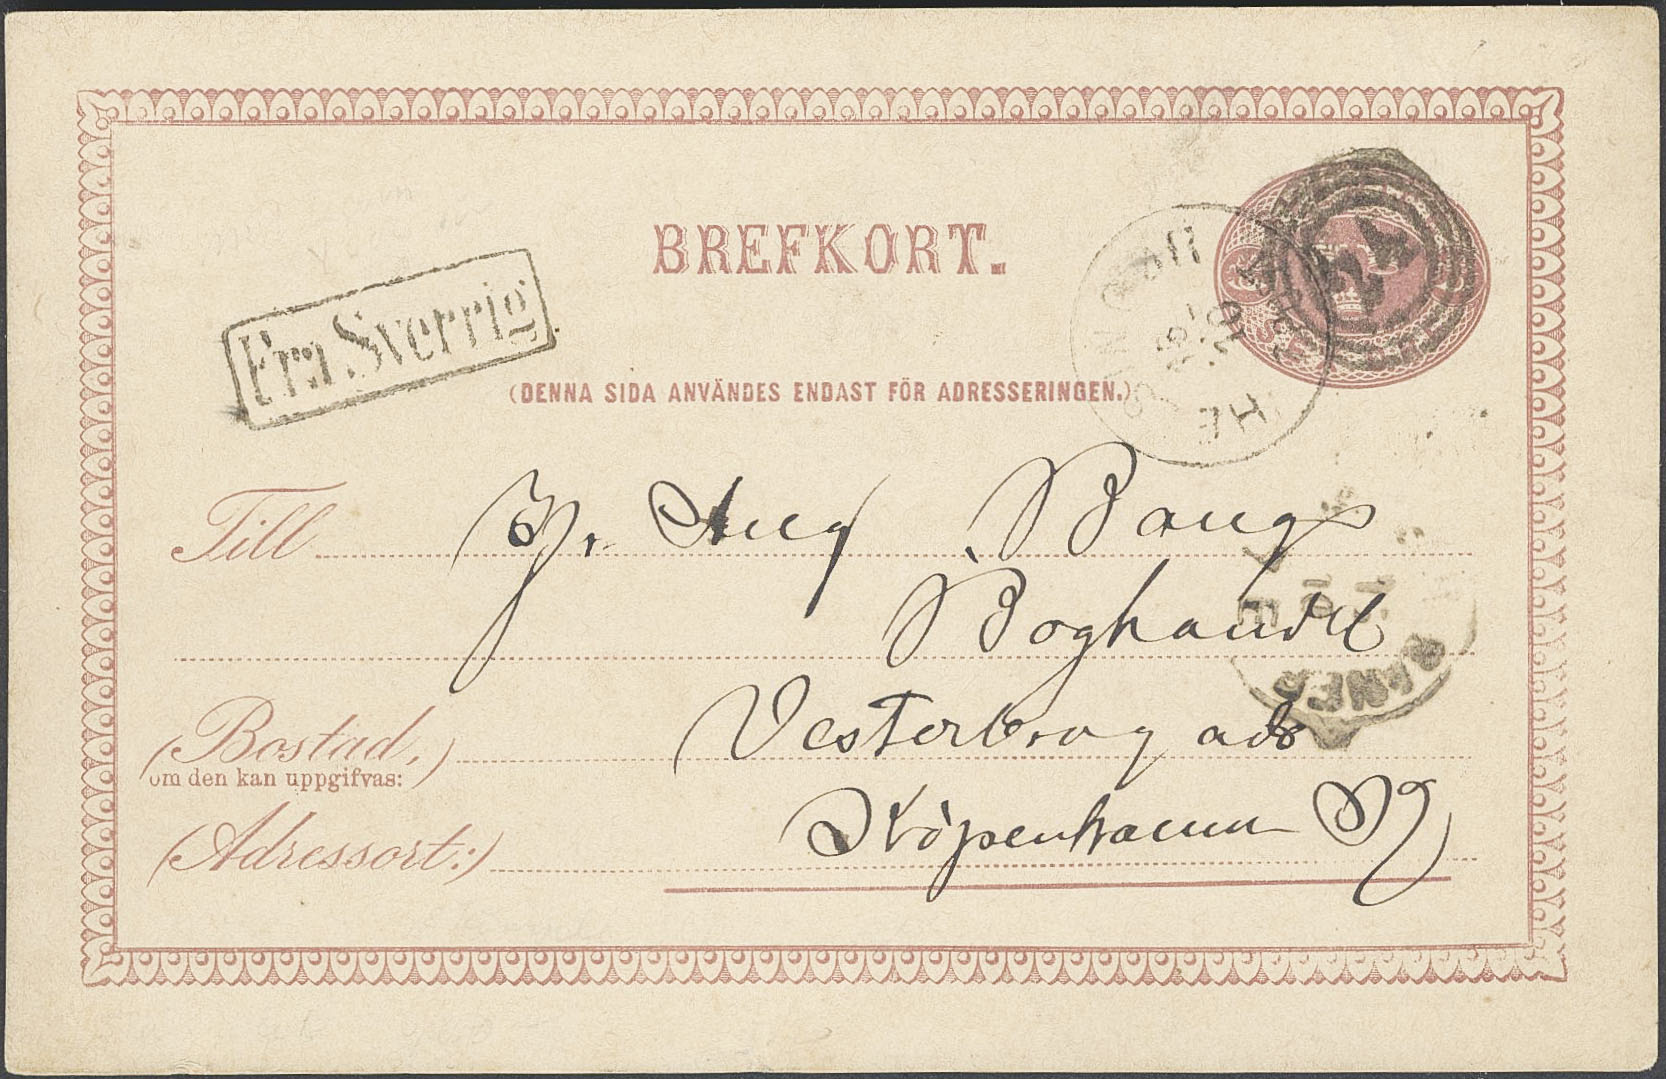 BREFKORT.
Fra Sverrig
(DENNA SIDA ANVÄNDES ENDAST FÖR ADRESSERINGEN.)
Till Hr. Aug Bang
Boghandel
Vesterbrogade
(Bostad,
om den kan uppgifvas:)
(Adressort:) Köpenhamn